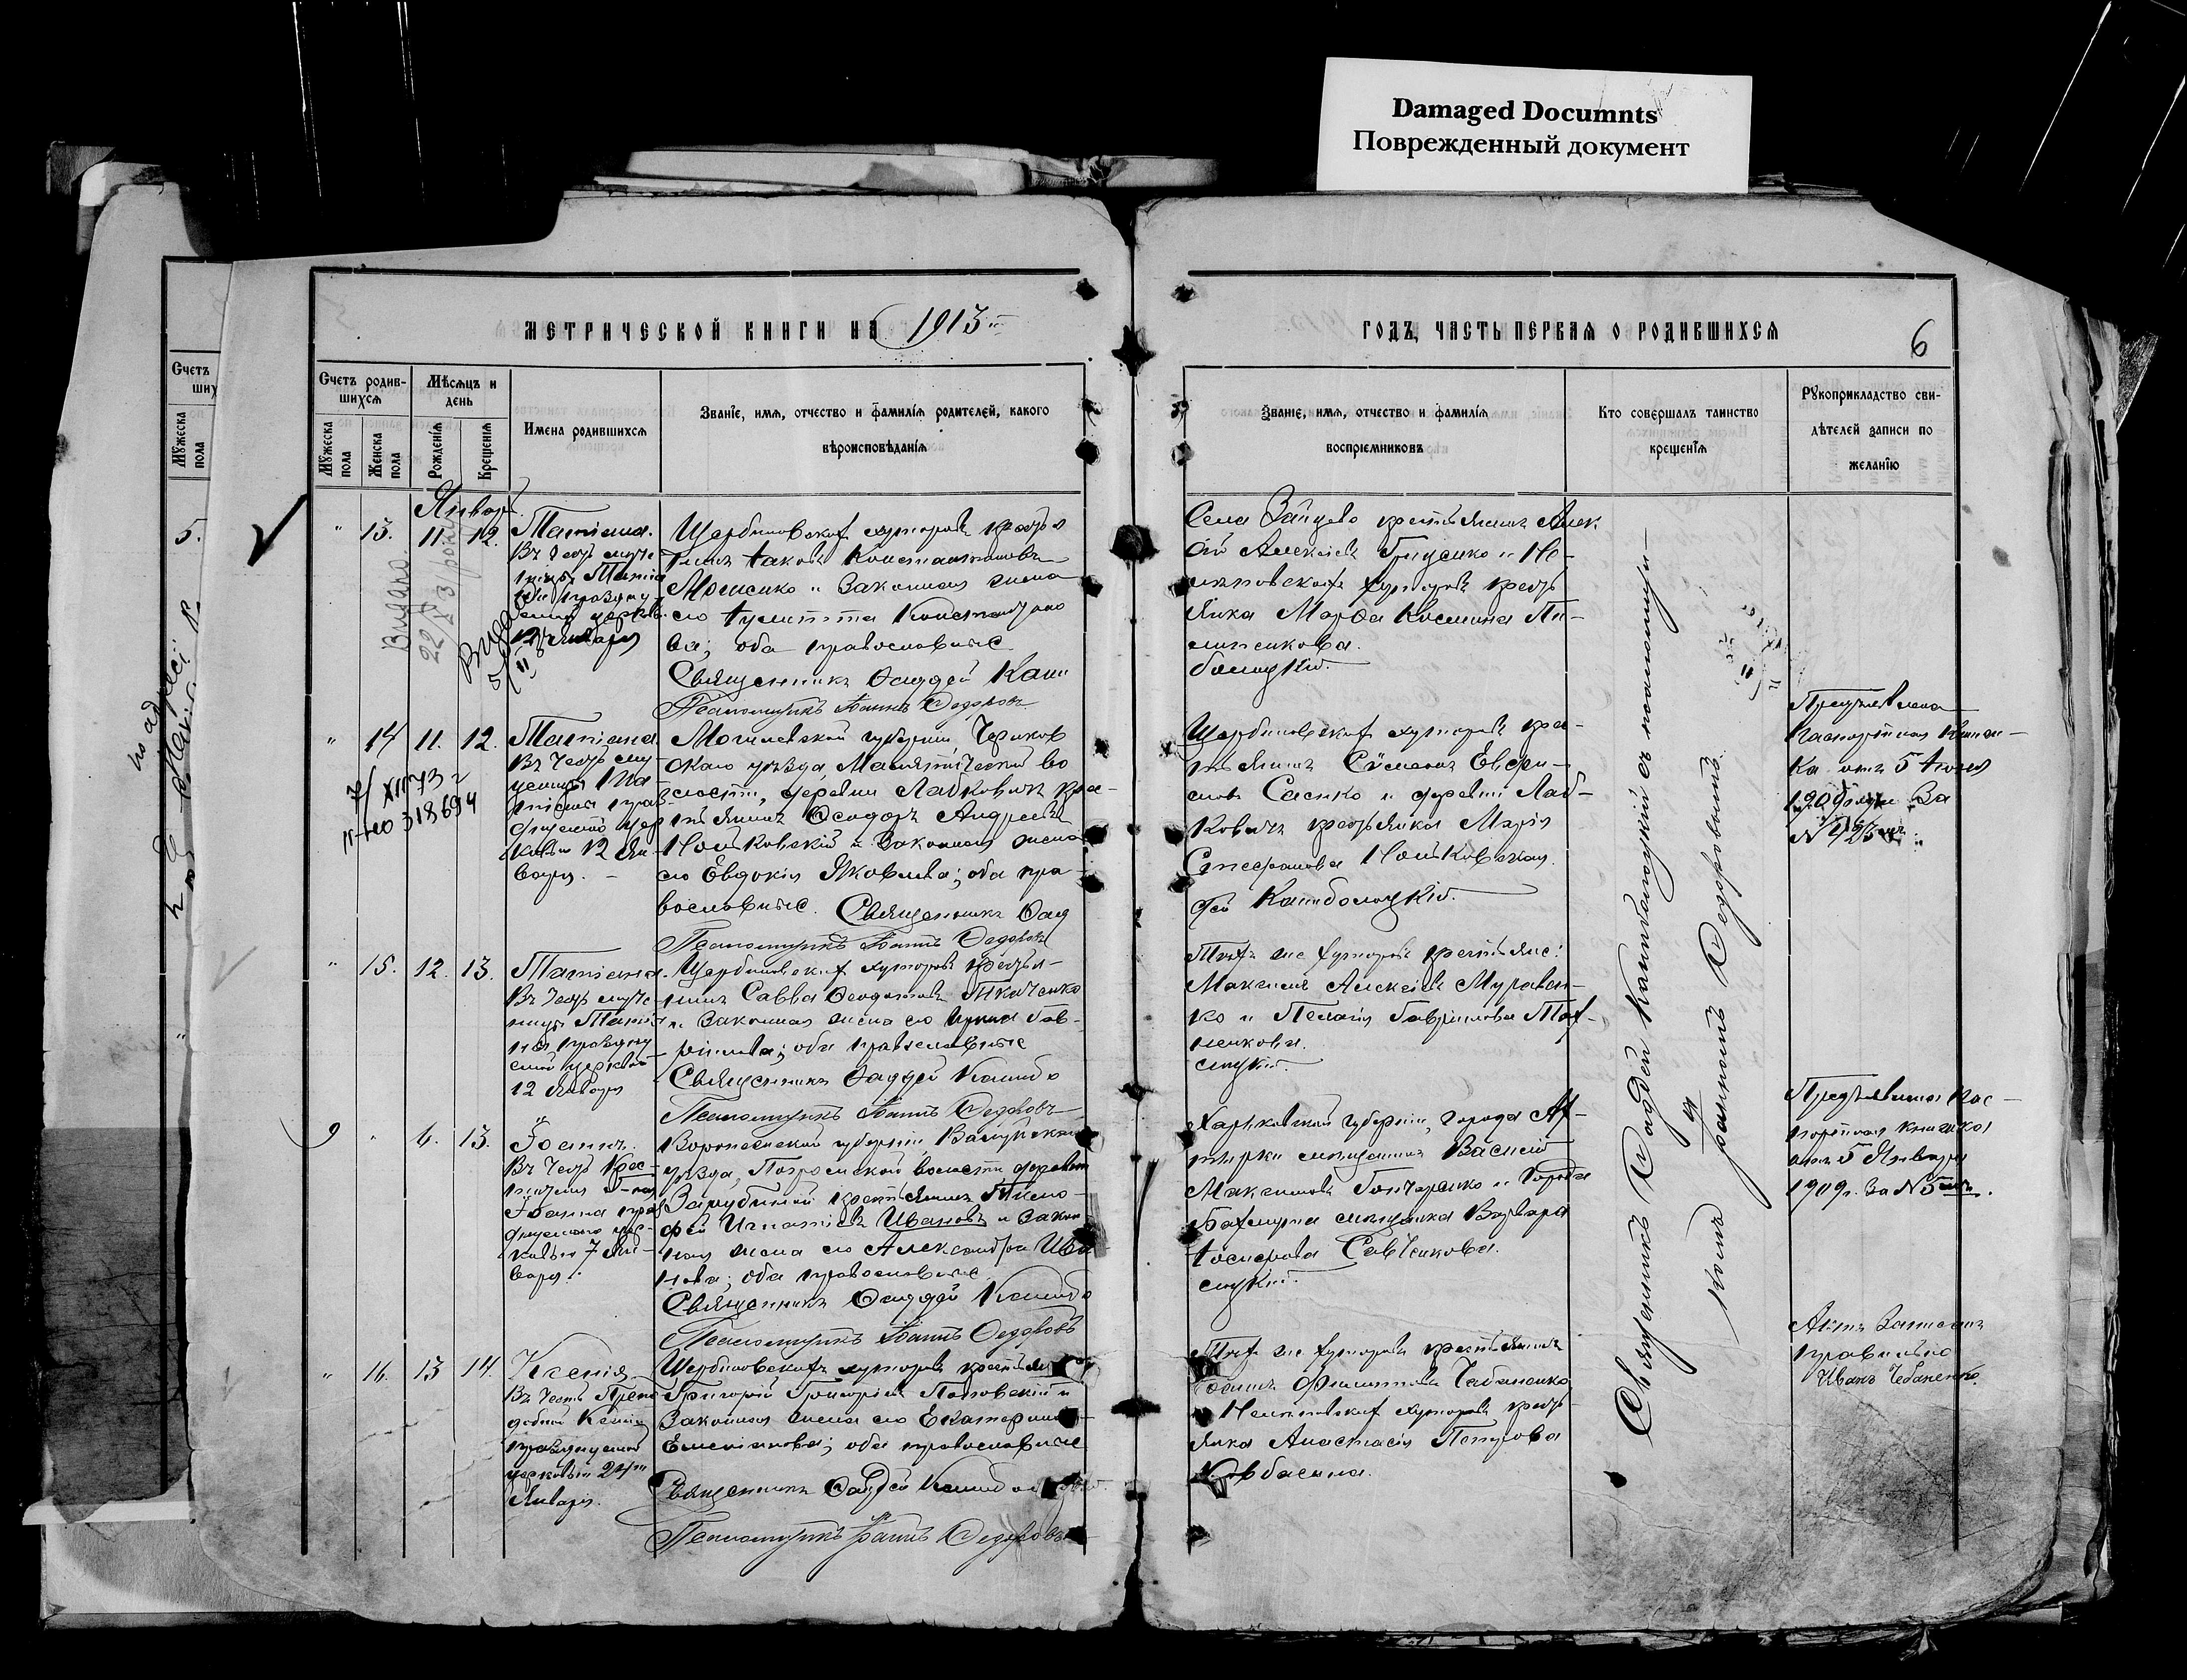 Damaged Documnts
Поврежденный документ
МЕТРИЧЕСКОЙ КНИГИ НА 1913
ГОДЪ, ЧАСТЬ ПЕРВАЯ О РОДИВШИХСЯ
6
Счетъ родив-
шихся
Мѣсяцъ и
день
Мужеска пола
Женска пола
Рожденія
Крещенія
Имена родившихся
Званіе, имя, отчество и фамилія родителей, какого
вѣроисповѣданія
Званіе, имя, отчество и фамилія
воспріемниковъ
Кто совершалъ таинство
крещенія
Рукоприкладство сви-
дѣтелей записи по
желанію
Счетъ
ших
Мужеска пола
5.
Январ.
" 13. 11. 12.
Татіана.
Въ честь муче-
ницы Татіа
ны празд
емой церков.
12 Января
Щербиновских хуторовъ крест
Іаковъ Константиновъ
Мосиенко и законная жена
его Іулитта Константино
ва; оба православные
Священникъ Фаддей Камш
Псаломщикъ Іоаннъ Федоровъ
Села Зайцево крестьянинъ Алек
Алексіевъ Гриценко и Не-
лѣповскихъ хуторовъ крест
янка Марѳа Косьмина Пи-
липенкова.
болоцкій.
" 14 11. 12.
7/XII 73 г
318694
Татіана
Въ честь му
ченицы Та
тіаны праз
днуемой цер
ковью 12 Ян-
варя.
Могилевской губерніи Чериков
скаго уѣзда, Малятической во
лости, деревни Лабковичъ кре-
стьянинъ Ѳеодоръ Андреевъ
Новиковскій и законная жена
его Евдокія Яковлева; оба пра-
вославные. Священникъ Фад
Псаломщикъ Іоаннъ Федоровъ
Щербиновскихъ хуторовъ кре-
стьянинъ Сѵмеонъ Евфи-
мовъ Саенко и деревни Лаб-
ковичъ крестьянка Марія
Стефанова Новиковская.
дей Камшболоцкій.
Предъявлена
паспортная книж-
ка отъ 5 Іюля
1909 года За
№ 423
" 15. 12. 13.
Татіана.
Въ честь муче-
ницы Татіа
ны праздну
емой церковью
12 Января
Щербиновских хуторовъ крестья-
нинъ Савва Ѳеодотовъ Ткаченко
и законная жена его Ирина Гав-
ріилова; оба православные
Священникъ Фаддей Камшбо
Псаломщикъ Іоаннъ Федоровъ
Тѣхъ же хуторовъ крестьяне:
Максимъ Алексіевъ Муравен-
ко и Пелагія Гавріилова
ненкова.
лоцкій.
9 " 6. 13.
Іоаннъ.
Въ честь Крес-
тителя Г-ня
Іоанна праз
днуемаго цер-
ковью 7 Ян-
варя.
Воронежской губерніи, Валуйскаго
уѣзда, Погромской волости деревни
Зарубиной крестьянинъ Тимо-
фей Игнатіевъ Ивановъ и закон-
ная жена его Александра Ива
нова; оба православные.
Священникъ Фаддей Камшбо
Псаломщикъ Іоаннъ Федоровъ
Харьковской губерніи, города Ах-
тырки мѣщанинъ Василій
Максимовъ Гончаренко и города
Бахмута мѣщанка Варвара
Іосифова Савченкова.
лоцкій.
Предъявлена пас-
портная книжка
отъ 5 Января
1909 г. За № 5
" 16. 13 14.
Ксенія.
Въ честь Препо
добной Ксеніи
празднуемой
церковью 24
Января.
Щербиновскихъ хуторовъ крестьян
Григорій Григоріевъ Поповскій и
законная жена его Екатерина
Емеліанова; оба православные
Священникъ Фаддей Камшбо
Псаломщикъ Іоаннъ Федоровъ
Тѣхъ же хуторовъ крестьянинъ
Іоаннъ Филипповъ Чабаненко
и Нелѣповскихъ хуторовъ кресть
янка Анастасія Петрова
Ковбасина.
Актъ записанъ
правильно
Иванъ Чебаненко.
Священникъ Фаддей Камшболоцкій съ псаломщи-
комъ Іоанномъ Федоровымъ